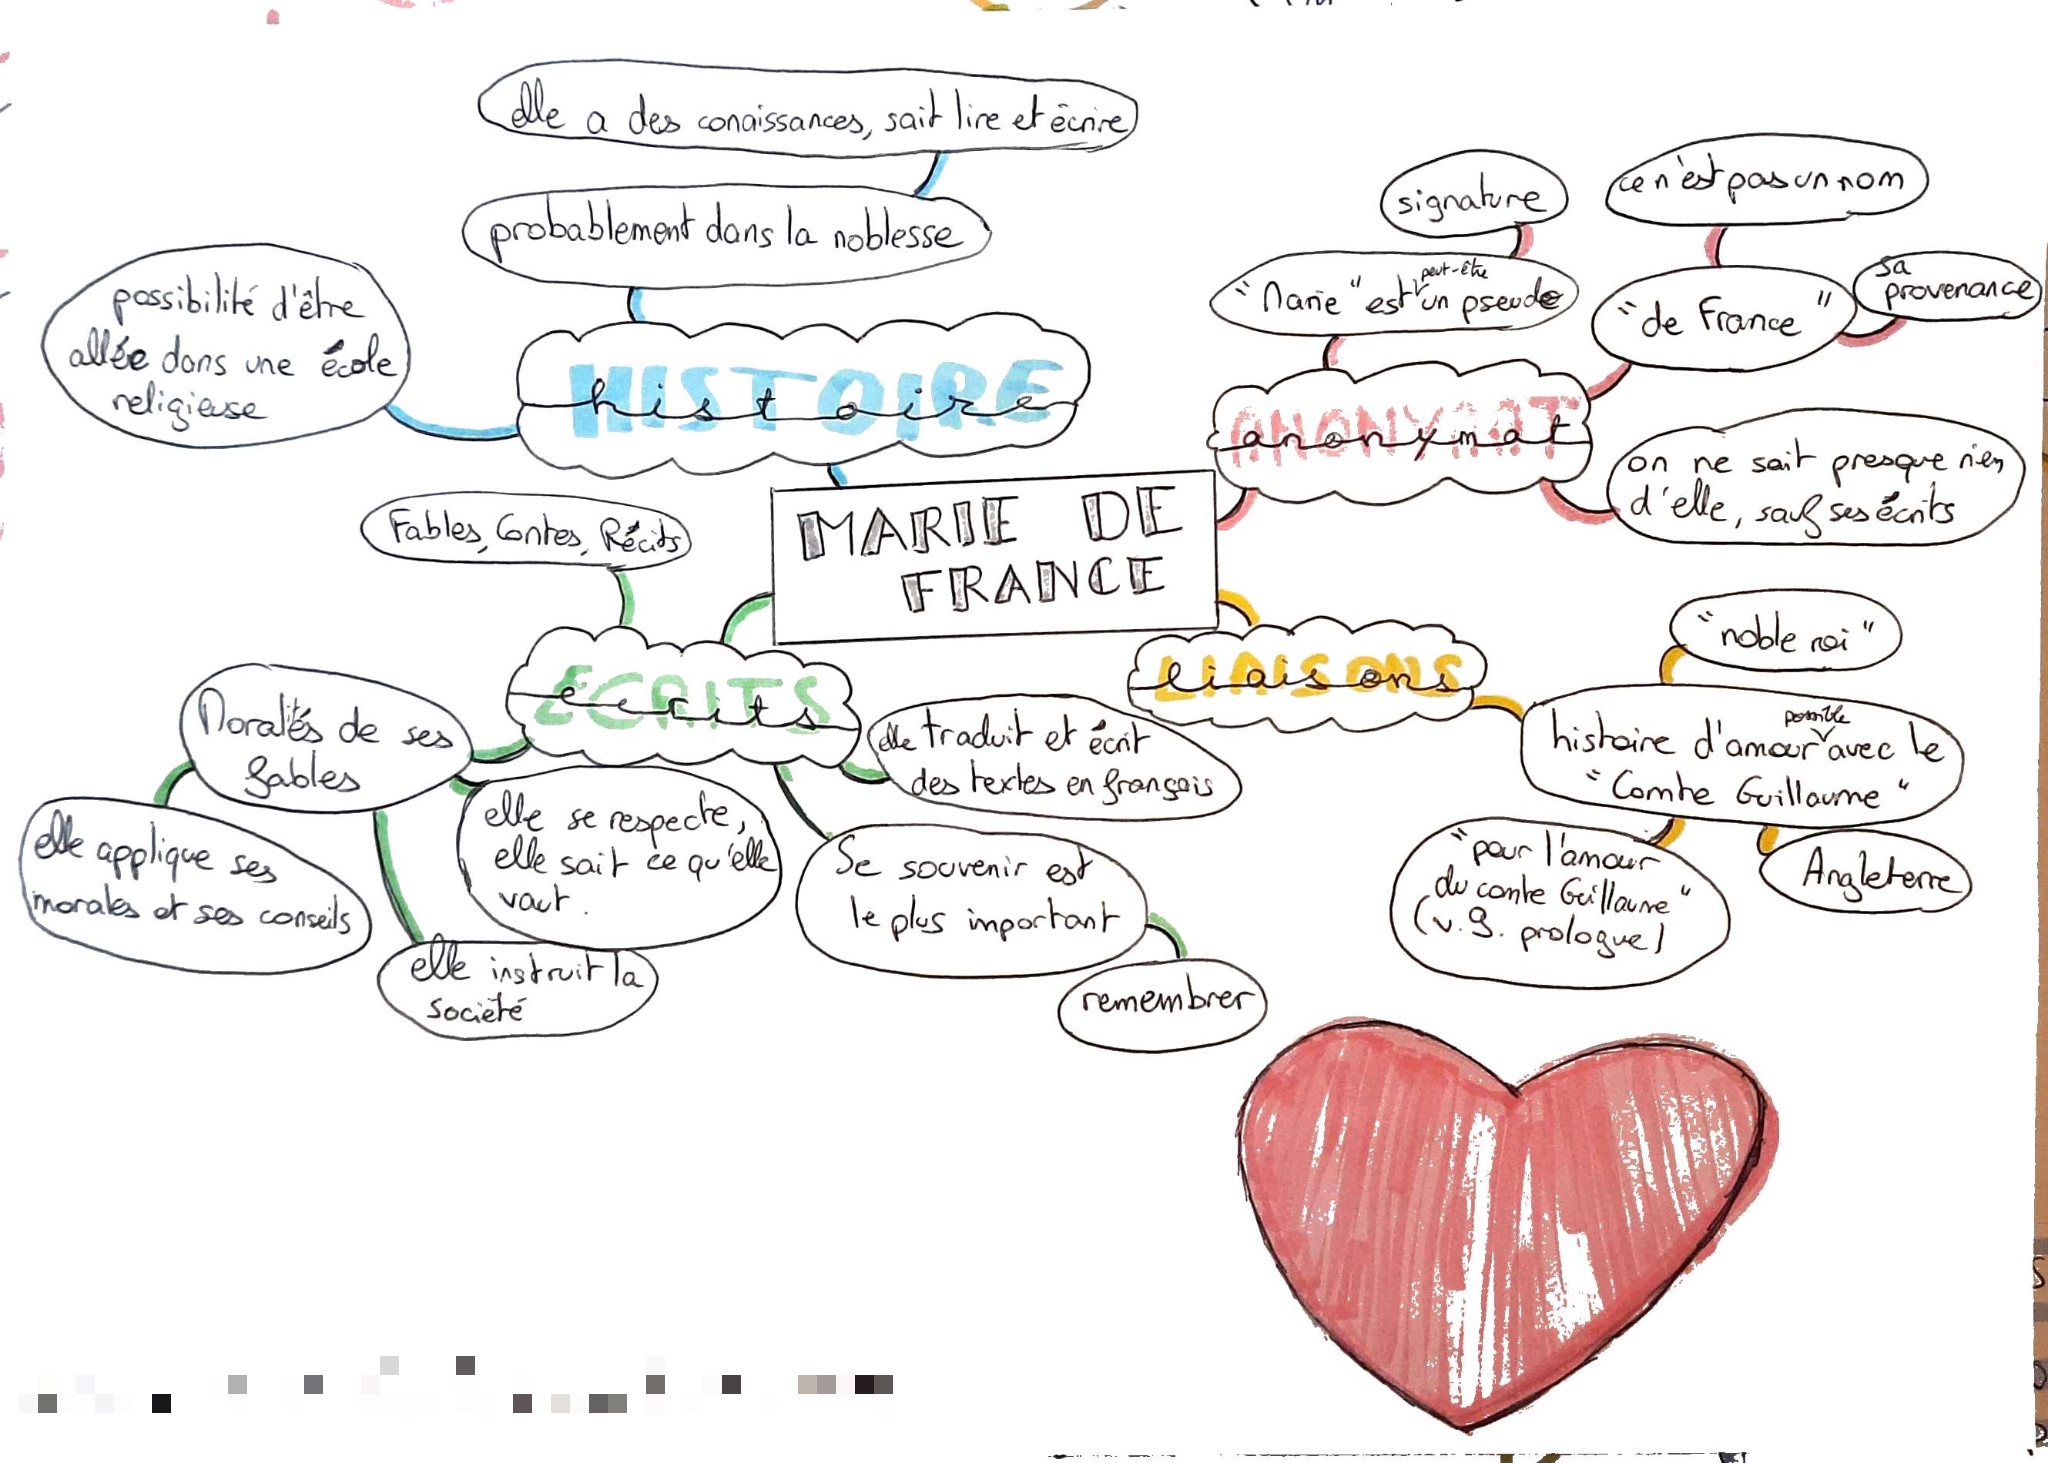 elle a des conaissances, sait lire et écrire
probablement dans la noblesse
possibilité d'être
allée dans une école
religieuse
HISTOIRE
histoire
signature
ce n'est pas un nom
"Marie" est peut-être un pseudo
"de France"
sa
provenance
ANONYMAT
anonymat
on ne sait presque rien
d'elle, sauf ses écrits
MARIE DE
FRANCE
Fables, Contes, Récits
ÉCRITS
écrits
Moralités de ses
fables
elle applique ses
morales et ses conseils
elle se respecte,
elle sait ce qu'elle
vaut.
elle instruit la
société
elle traduit et écrit
des textes en français
Se souvenir est
le plus important
remembrer
LIAISONS
liaisons
"noble roi"
histoire d'amour possible avec le
"Comte Guillaume"
"pour l'amour
du comte Guillaume"
(v.9. prologue)
Angleterre